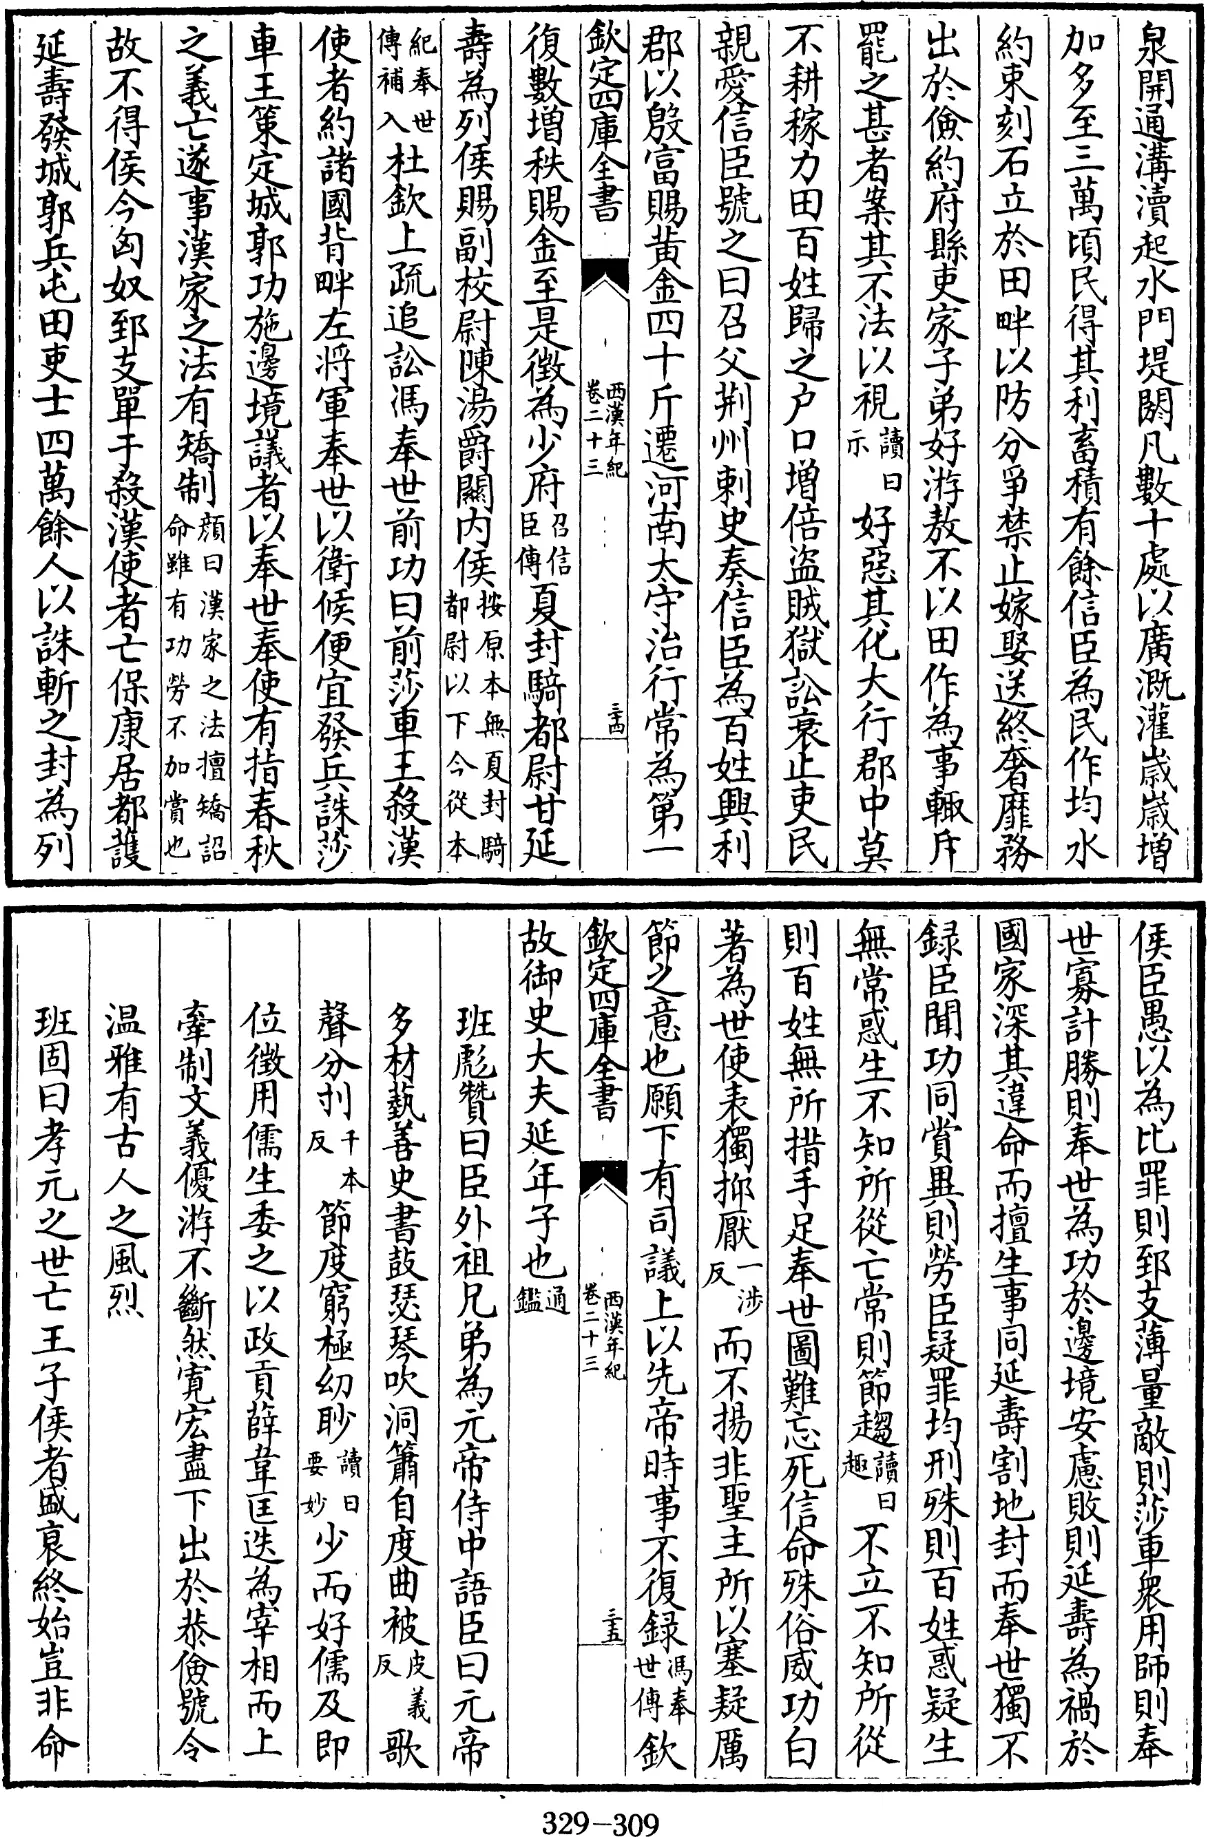 泉開通溝瀆起水門堤閼凡數十處以廣溉灌嵗嵗增
加多至三萬頃民得其利畜積有餘信臣為民作均水
約束刻石立於田畔以防分爭禁止嫁娶送終奢靡務
出於儉約府縣吏家子弟好游敖不以田作為事輙斥
罷之甚者案其不法以視讀曰示好惡其化大行郡中莫
不耕稼力田百姓歸之户口增倍盜賊獄訟衰止吏民
親愛信臣號之曰召父荆州刺史奏信臣為百姓興利
郡以殷富賜黄金四十斤遷河南太守治行常為第一
欽定四庫全書 西漢年紀卷二十三 三十四
復數增秩賜金至是徵為少府召信臣傳夏封騎都尉甘延
壽為列侯賜副校尉陳湯爵關内侯按原本無夏封騎都尉以下今從本
紀奉世傳補入杜欽上疏追訟馮奉世前功曰前莎車王殺漢
使者約諸國背畔左將軍奉世以衛候便宜發兵誅莎
車王策定城郭功施邊境議者以奉世奉使有指春秋
之義亡遂事漢家之法有矯制顔曰漢家之法擅矯詔命雖有功勞不加賞也
故不得侯今匈奴郅支單于殺漢使者亡保康居都護
延壽發城郭兵屯田吏士四萬餘人以誅斬之封為列
侯臣愚以為比罪則郅支薄量敵則莎車衆用師則奉
世寡計勝則奉世為功於邊境安慮敗則延壽為禍於
國家深其違命而擅生事同延壽割地封而奉世獨不
録臣聞功同賞異則勞臣疑罪均刑殊則百姓惑疑生
無常惑生不知所從亡常則節趨讀曰趣不立不知所從
則百姓無所措手足奉世圖難忘死信命殊俗威功白
著為世使表獨抑厭一涉反而不揚非聖主所以塞疑厲
節之意也願下有司議上以先帝時事不復録馮奉世傳欽
欽定四庫全書 西漢年紀卷二十三 三十五
故御史大夫延年子也通鑑
班彪贊曰臣外祖兄弟為元帝侍中語臣曰元帝
多材藝善史書鼓瑟琴吹洞簫自度曲被皮義反歌
聲分刌千本反節度窮極幼眇讀曰要妙少而好儒及即
位徵用儒生委之以政貢薛韋匡迭為宰相而上
牽制文義優游不斷然寛宏盡下出於恭儉號令
温雅有古人之風烈
班固曰孝元之世亡王子侯者盛衰終始豈非命
329-309